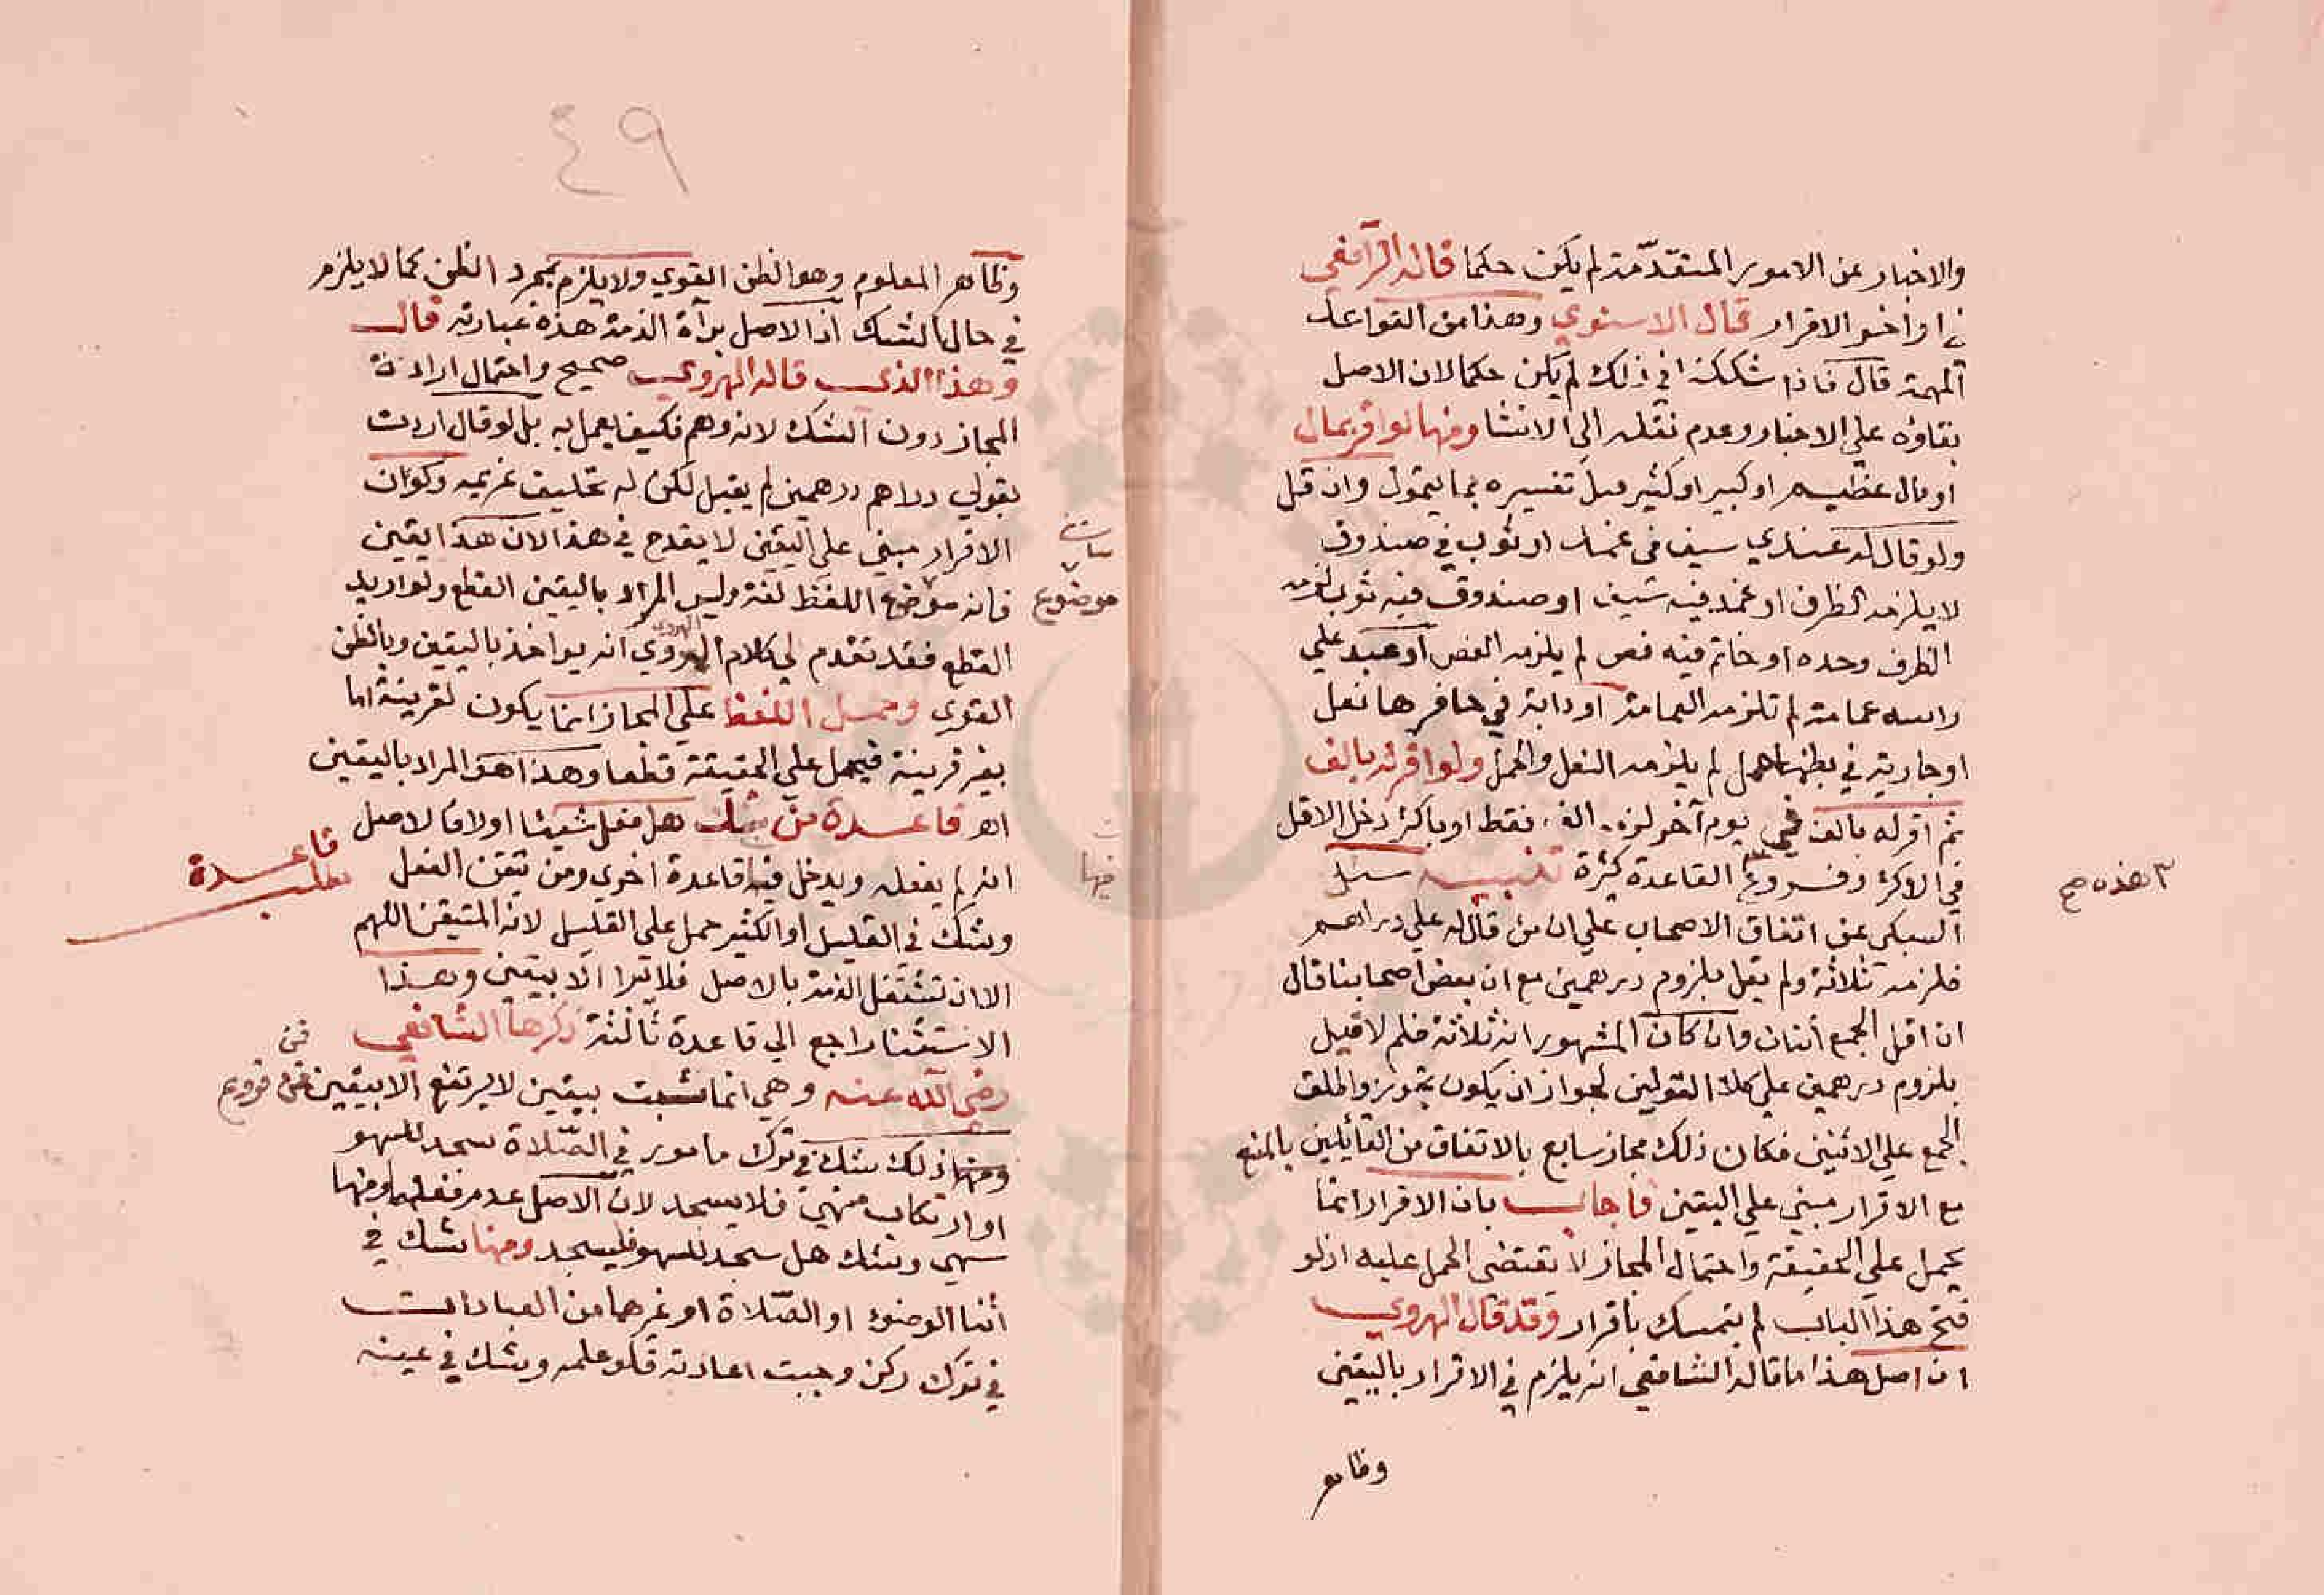 والاخبار عن الامور المتقدّمة لم يكن حكما قاله الرافعي
في اواخر الاقرار قال الاسنوي وهذا من القواعد
المهمة قال فاذا شككنا في ذلك لم يكن حكما لان الاصل
بقاؤه على الاخبار وعدم نقله الى الانشا ومنها لو اقر بمال
او مال عظيم او كبير او كثير قبل تفسيره بما يتمول وان قل
ولو قال له عندي سيف في غمد او ثوب في صندوق
لا يلزمه الظرف او غمد فيه سيف او صندوق فيه ثوب لزمه
الظرف وحده او خاتم فيه فص لم يلزمه الفص او عبد على
راسه عمامة لم تلزمه العمامة او دابة في حافرها نعل
او جارية في بطنها حمل لم يلزمه النعل والحمل ولو اقر له بالف
ثم اقر له بالف في يوم آخر لزمه الف فقط او باكثر دخل الاقل
في الاكثر وفروع القاعدة كثيرة تنبيه سئل
٣ هذه صح
السبكي عن اتفاق الاصحاب على ان من قال له علي دراهم
فلزمه ثلاثة ولم يقل بلزوم درهمين مع ان بعض اصحابنا قال
ان اقل الجمع اثنان وان كان المشهور انه ثلاثة فلم لا قيل
بلزوم درهمين على كلا القولين لجواز ان يكون تجوز واطلق
الجمع على الاثنين فكان ذلك مجاز سايع بالاتفاق من القائلين بالمنع
مع الاقرار مبني على اليقين فاجاب بان الاقرار انما
يحمل على الحقيقة واحتمال المجاز لا يقتضى الحمل عليه اذ لو
فتح هذا الباب لم يتمسك باقرار وقد قال الهروي
ان اصل هذا ما قاله الشافعي انه يلزم في الاقرار باليقين
وظاهر
٤٩
وظاهر المعلوم وهو الظن القوي ولا يلزم بمجرد الظن كما لا يلزم
في حال الشك اذ الاصل برآة الذمة هذه عبارته قال
وهذا الذي قاله الهروي صحيح واحتمال ارادة
المجاز دون الشك لانه وهم فكيف يعمل به بل لو قال اردت
بقولي دراهم درهمين لم يقبل لكن له تحليف غريمه وكون
الاقرار مبني على اليقين لا يقدح في هذا لان هذا يقين
فانه موضع اللفظ لغة وليس المراد باليقين القطع ولو اريد
موضوع
القطع فقد تقدم لي كلام الهروي انه يواخذ باليقين وبالظن
الهروي
القوي وحمل اللفظ على المجاز انما يكون لقرينة اما
بغير قرينة فيحمل على الحقيقة قطعا وهذا هو المراد باليقين
اهـ قاعدة من شك هل فعل شيئا اولا فالاصل
انه لم يفعله ويدخل فيه قاعدة اخرى ومن تيقن الفعل
فيها
قاعدة
مطلب
وشك في القليل او الكثير حمل على القليل لانه المتيقن اللهم
الا ان تشتغل الذمة بالاصل فلا تبرا الا بيقين وهذا
الاستثنا راجع الى قاعدة ثالثة ذكرها الشافعي
رضي الله عنه وهي انما ثبت بيقين لا يرتفع الا بيقين فمن فروع
فمن
ومنها ذلك شك في ترك مامور في الصّلاة سجد للسهو
او ارتكاب منهي فلا يسجد لان الاصل عدم فعلهما ومنها
سهى وشك هل سجد للسهو فليسجد ومنها شك في
أثنا الوضوء او الصّلاة او غرهما من العبادات
في ترك ركن وجبت اعادته فلو علمه وشك في عينه